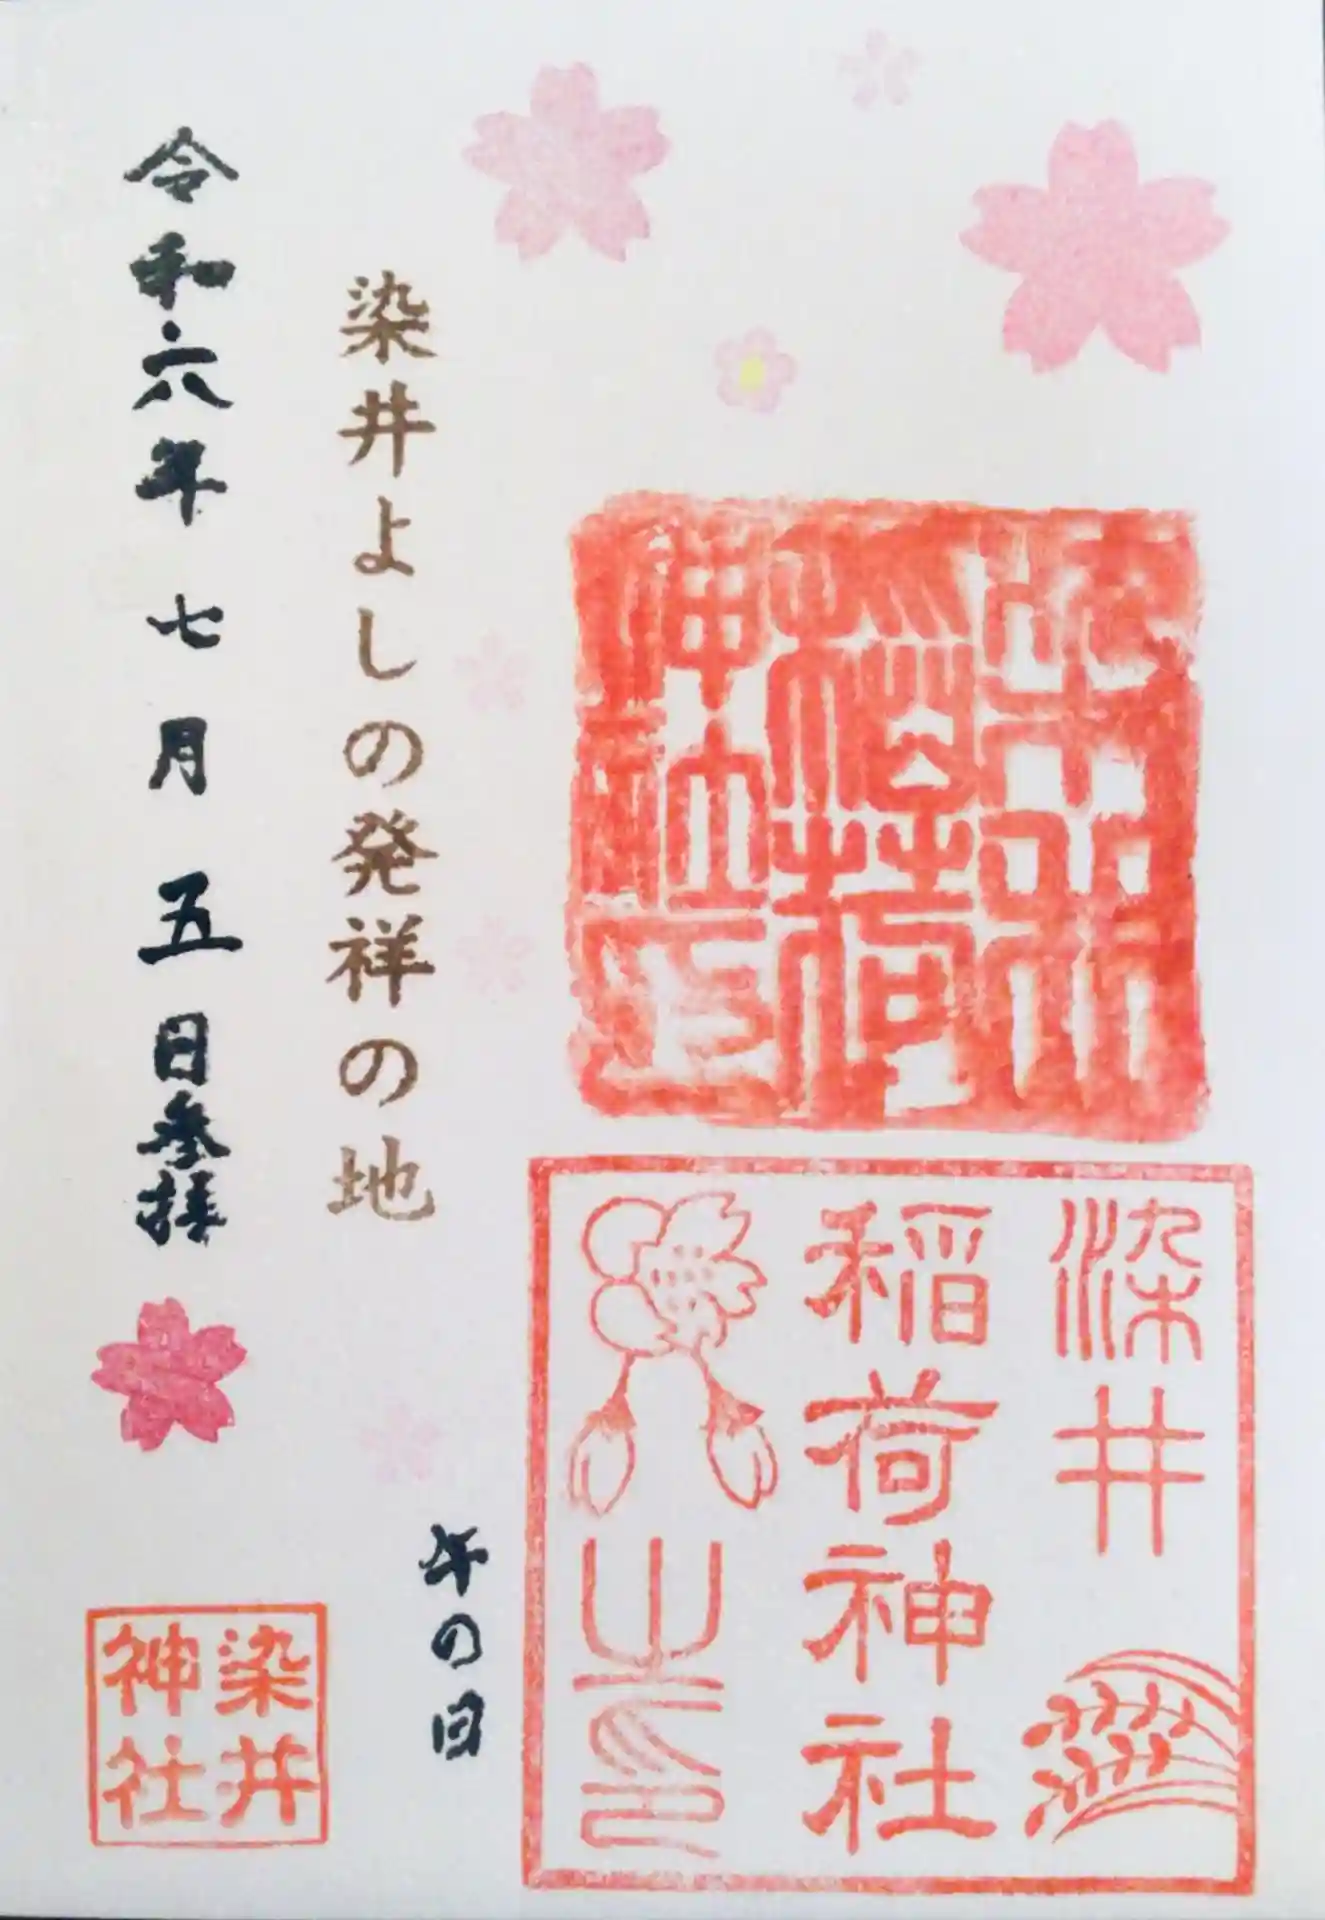 染井
稲荷神社
之印
染井よしの発祥の地
午の日
令和六年七月五日参拝
染井
神社